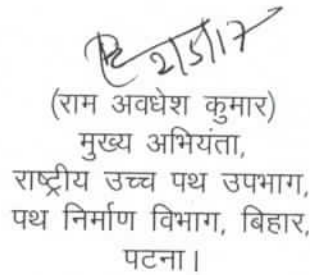 2/5/17
(राम अवधेश कुमार)
मुख्य अभियंता,
राष्ट्रीय उच्च पथ उपभाग,
पथ निर्माण विभाग, बिहार,
पटना।